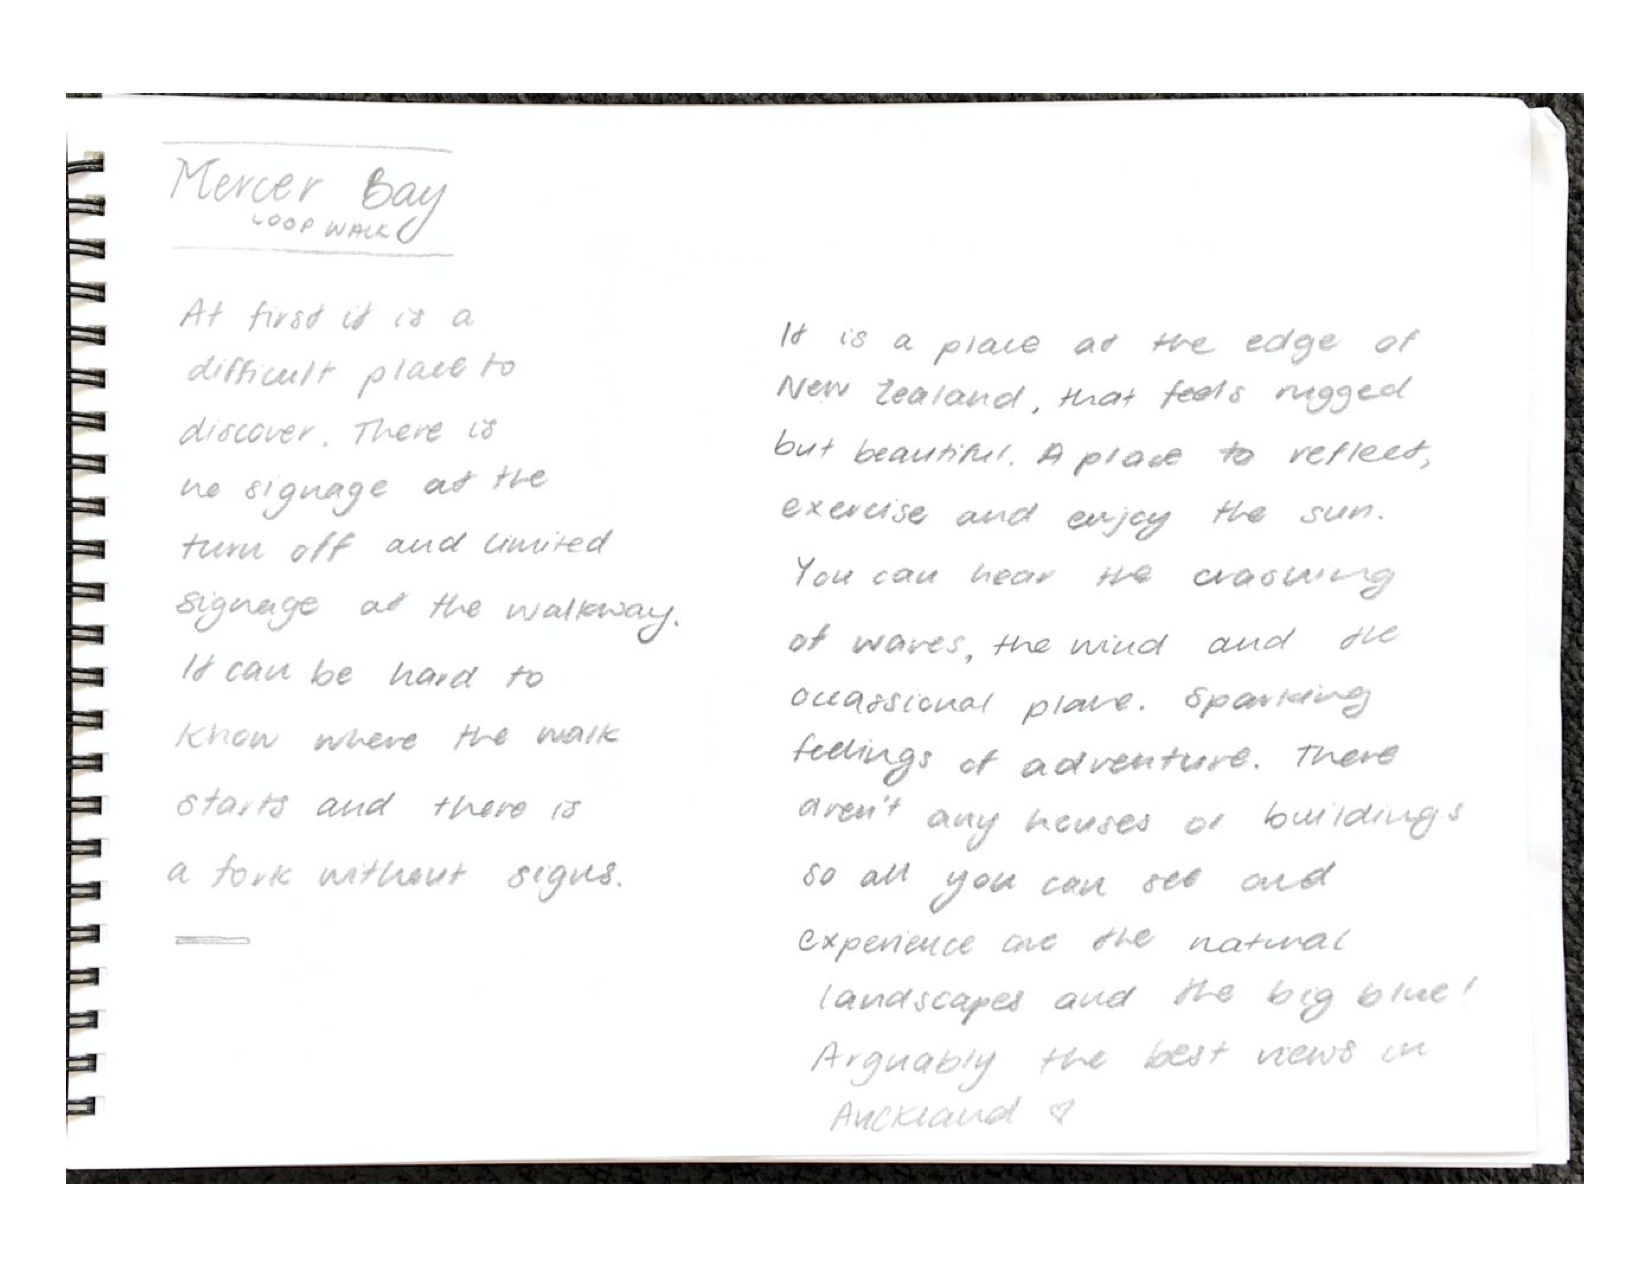 Mercer Bay
LOOP WALK
At first it is a
difficult place to
discover. There is
no signage at the
turn off and limited
signage at the walkway.
It can be hard to
know where the walk
starts and there is
a fork without signs.
It is a place at the edge of
New Zealand, that feels rugged
but beautiful. A place to reflect,
exercise and enjoy the sun.
You can hear the crashing
of waves, the wind and the
ocassional plane. Sparking
feelings of adventure. There
aren't any houses or buildings
so all you can see and
experience are the natural
landscapes and the big blue!
Arguably the best views in
Auckland ♡